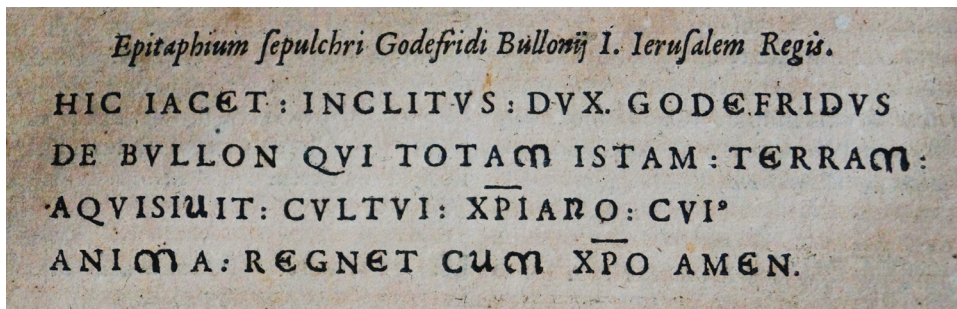 Epitaphium ſepulchri Godefridi Bullonij I. Ieruſalem Regis.
HIC IACET : INCLITVS : DVX. GODEFRIDVS
DE BVLLON QVI TOTAM ISTAM : TERRAM :
AQVISIUIT : CVLTVI : XP̅IANO : CVIꝰ
ANIMA : REGNET CUM XP̅O AMEN.